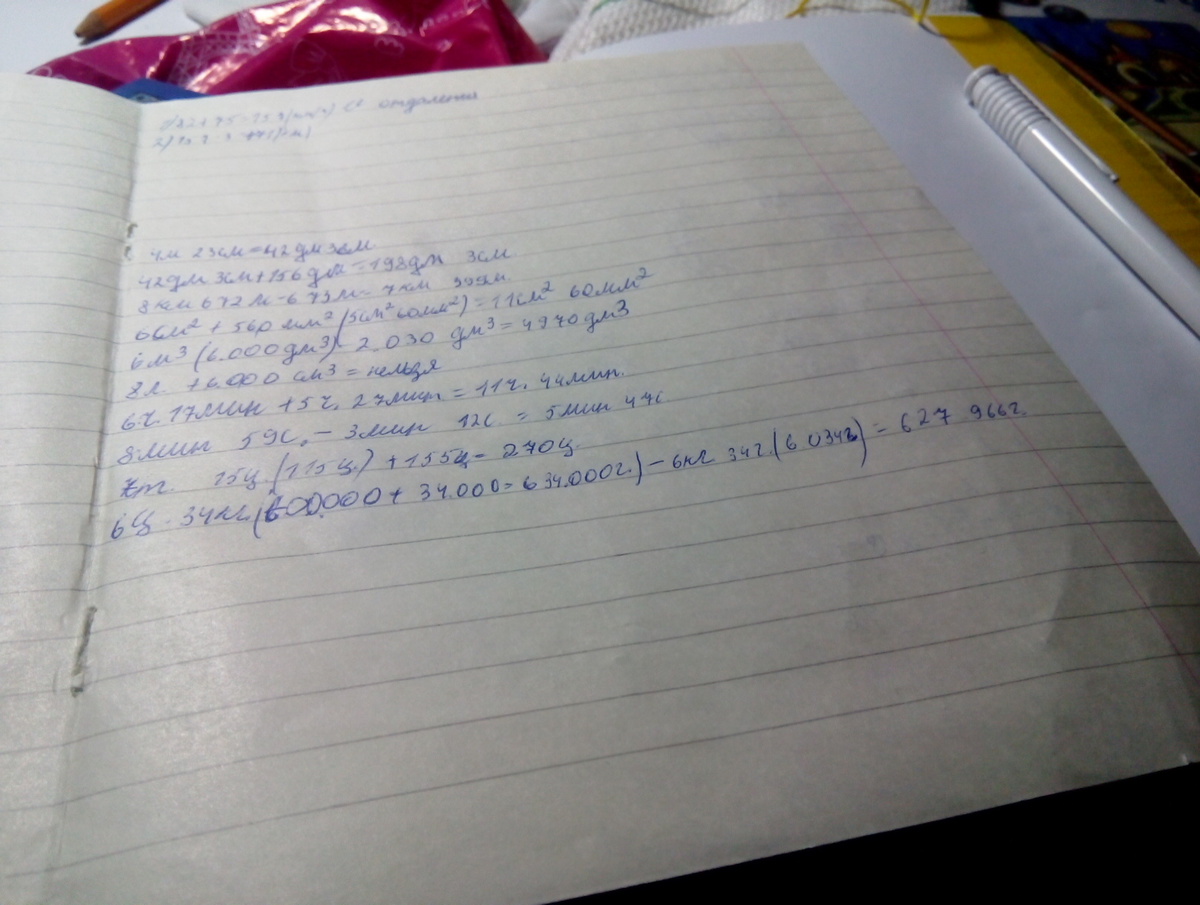 1) 82+75=157(км/ч) ск отдаления
4м 23см=42дм 3см
42дм 3см+156дм=198дм 3см
8км 672м-673м=7км 999м
6см² + 560мм² (5см² 60мм²)=11см² 60мм²
6м³ (6.000дм³) 2.030 дм³=4970дм3
8л. +6.000 см³ = нельзя
6ч. 17мин +5ч. 27мин = 11ч. 44мин.
8мин 59с. - 3мин 12с = 5мин 47с
т. 15ц. (115ц.) +155ц= 270ц.
6ц. 34кг. (600.000+ 34.000=634.000г.) - 6кг 34г. (6.034г) = 627 966г.